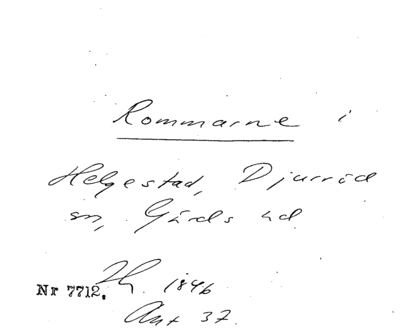 Rommarne i
Helgestad, Djurröd
sn, Gärds hd
Nr 7712. 1846
Ant 37